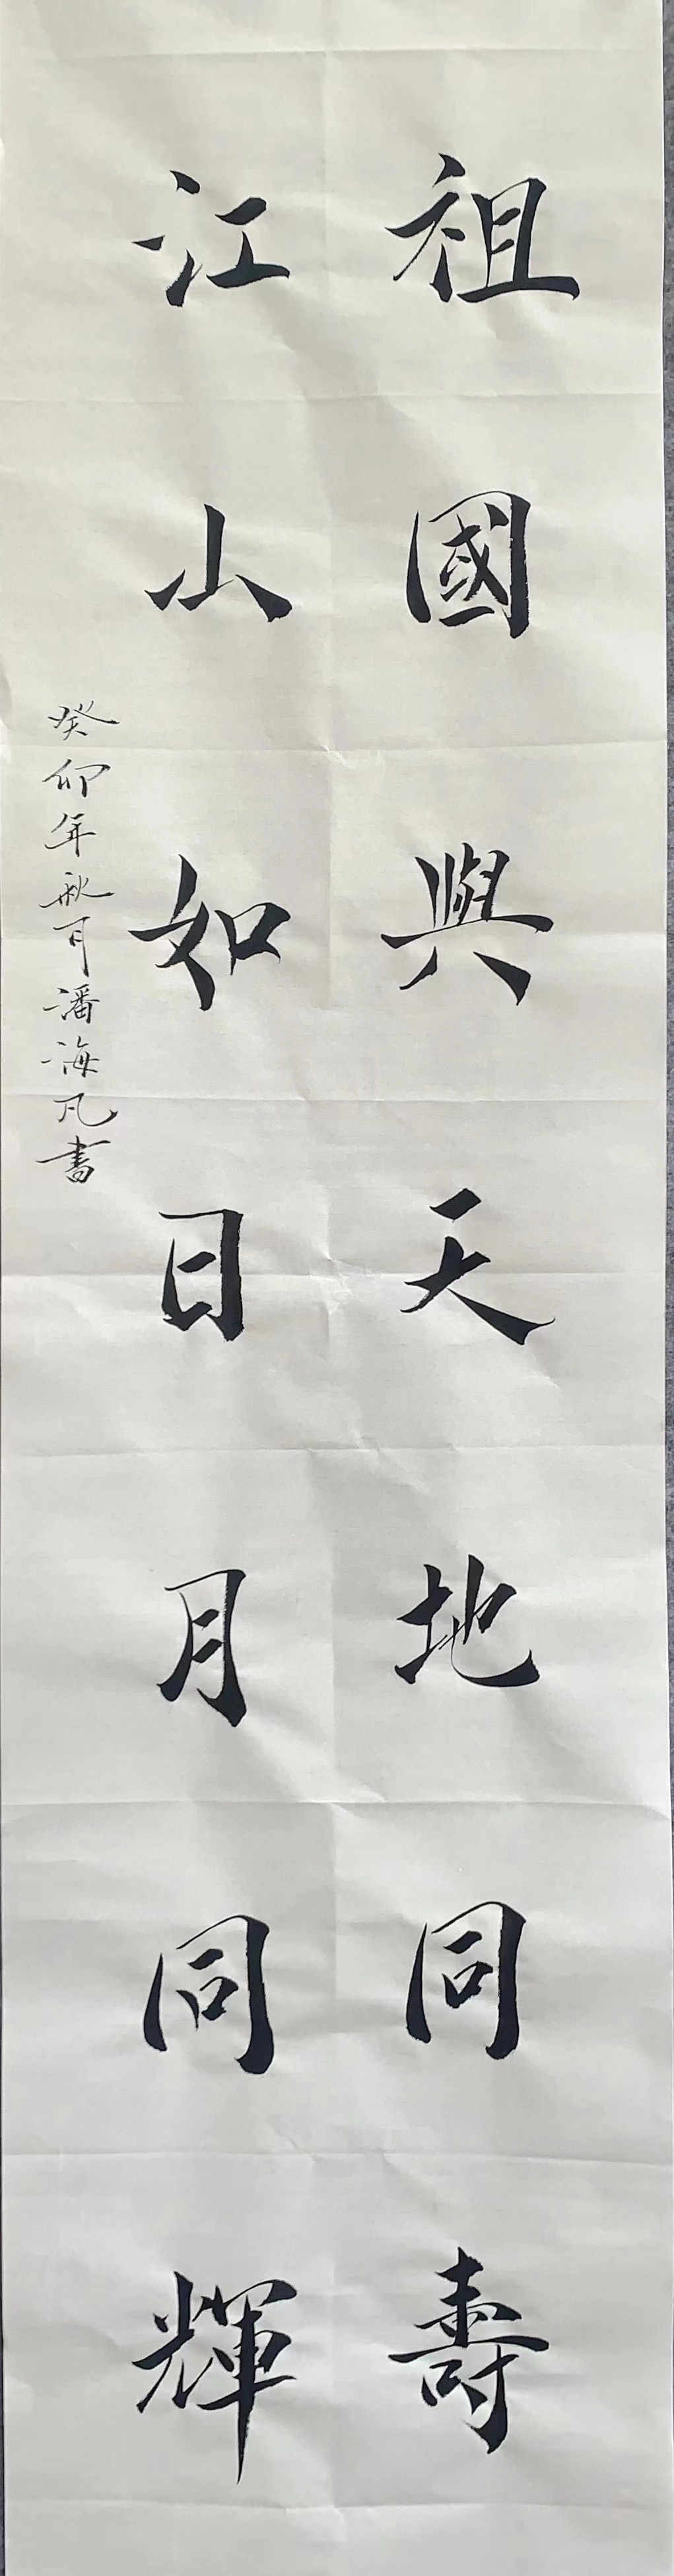 祖國與天地同壽
江山如日月同輝
癸卯年秋月潘海凡書